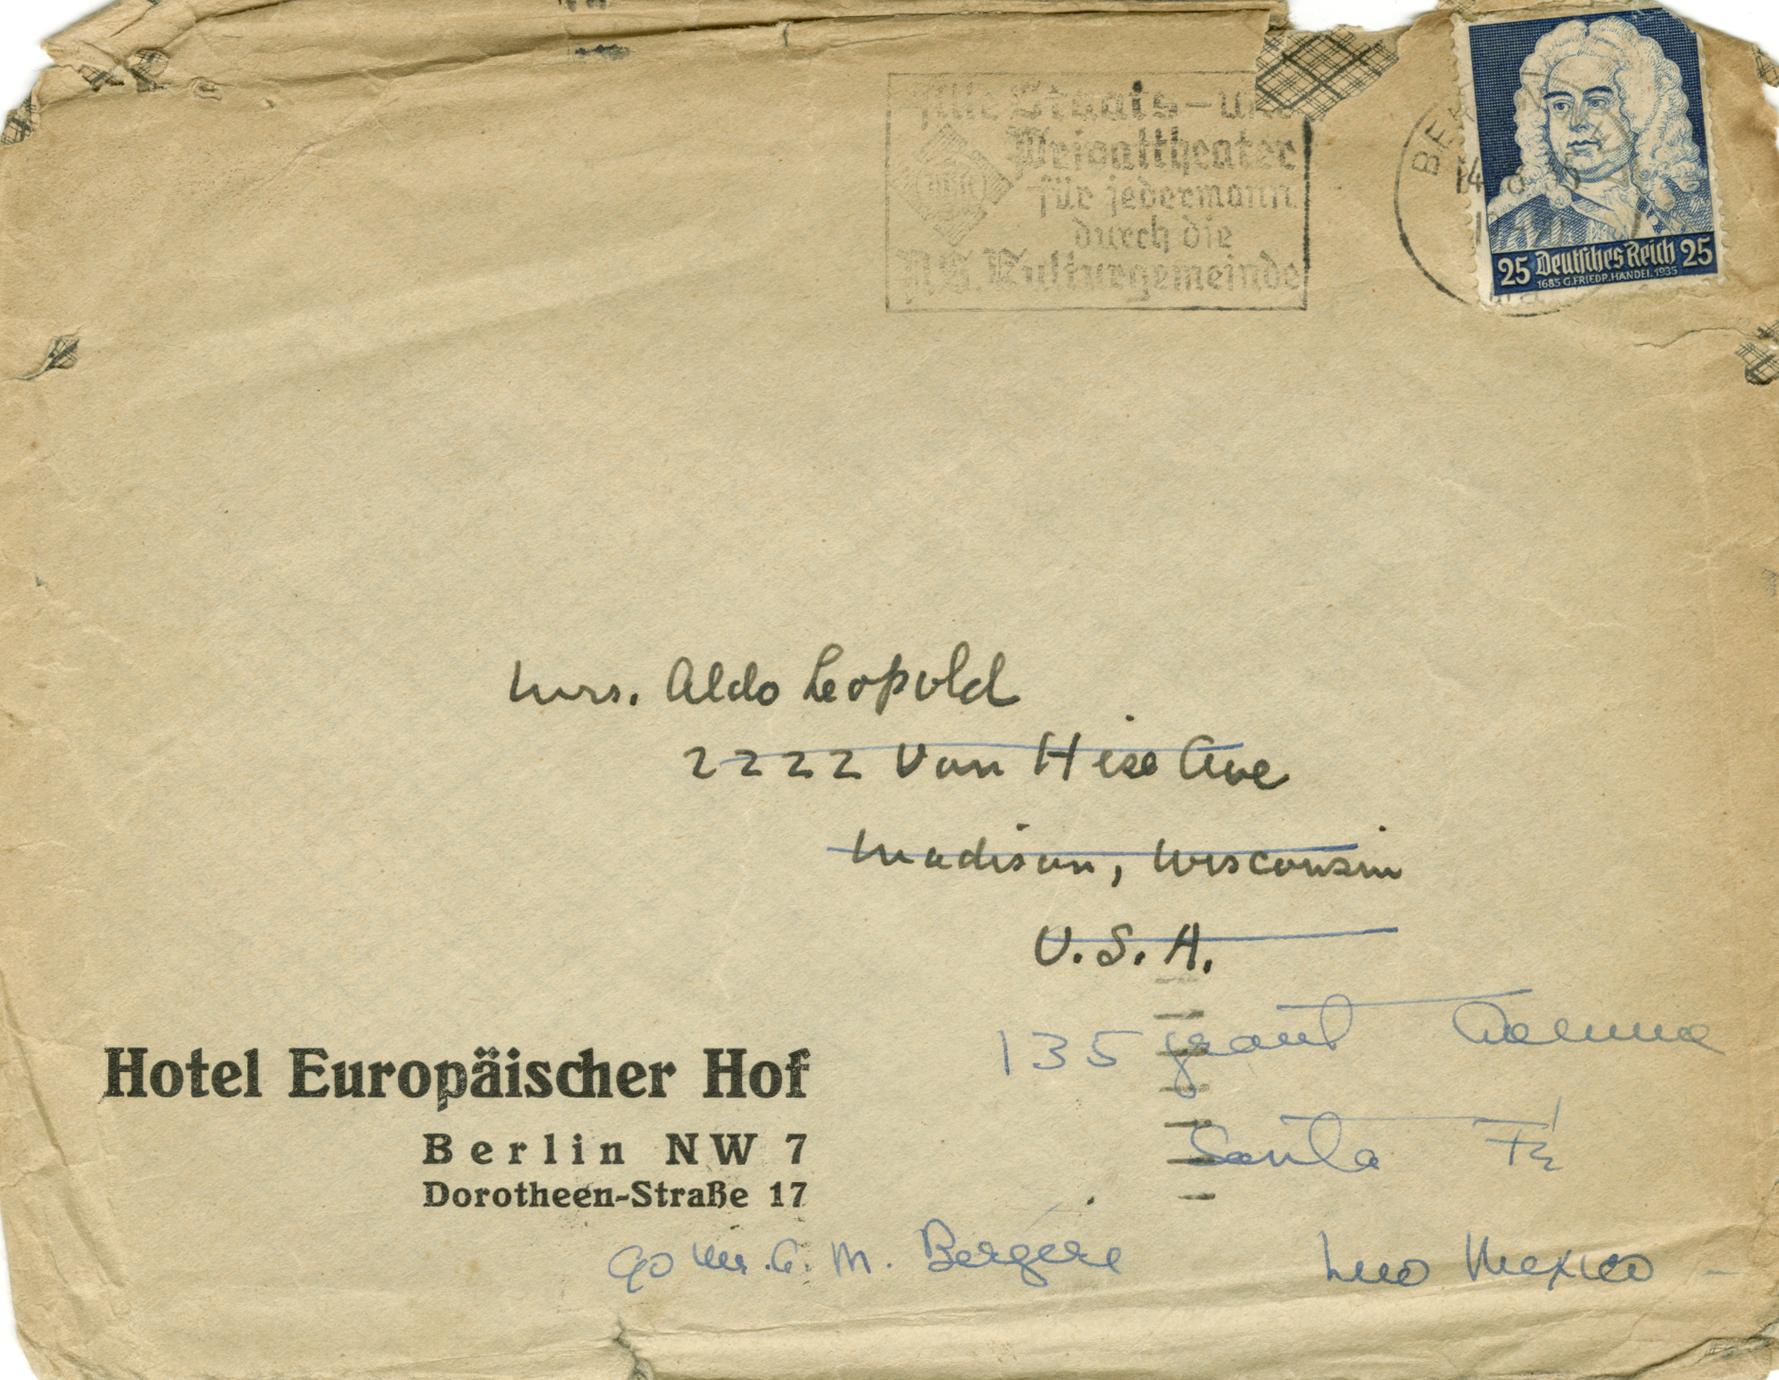 Alle Staats- und
Privattheater
für jedermann
durch die
N.S. Kulturgemeinde
25 Deutsches Reich 25
1685 G.FRIEDR.HÄNDEL 1935
Mrs. Aldo Leopold
2222 Van Hise Ave
Madison, Wisconsin
U.S.A.
135 Grant Avenue
Santa Fé
Hotel Europäischer Hof
Berlin NW 7
Dorotheen-Straße 17
c/o Mr. A. M. Bergere
New Mexico